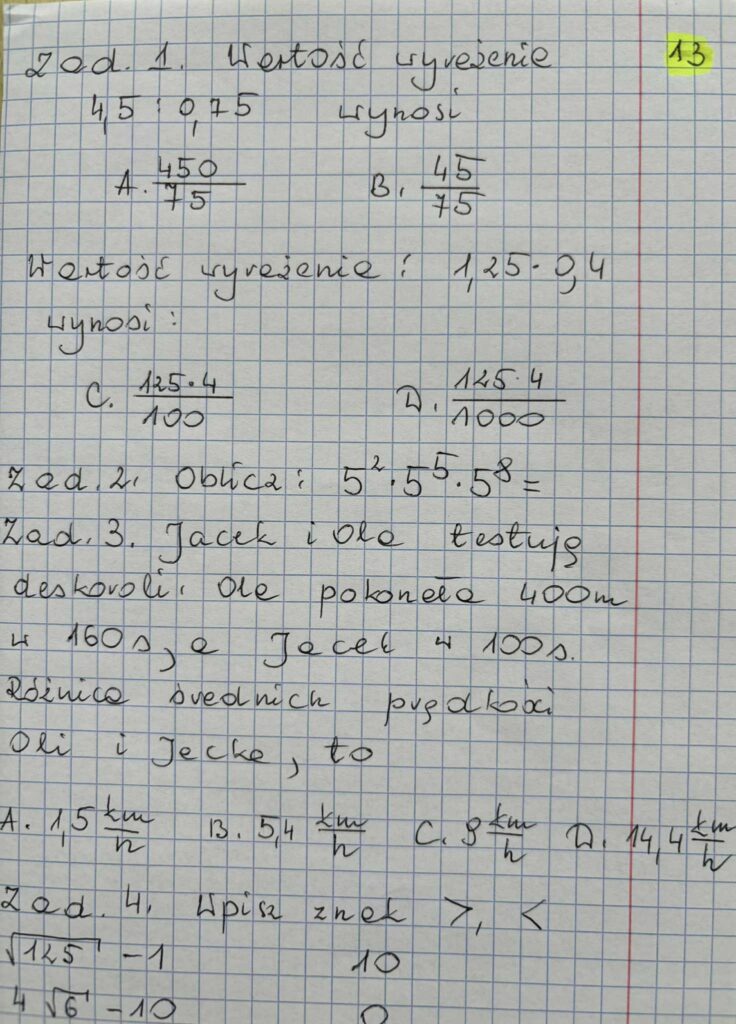 13
Zad. 1. Wartość wyrażenia
4,5 : 0,75 wynosi
A. 450/75 B. 45/75
Wartość wyrażenia : 1,25 · 0,4
wynosi :
C. 125·4/100 D. 125·4/1000
Zad. 2. Oblicz : 5² · 5⁵ · 5⁸ =
Zad. 3. Jacek i Ola testują
deskorolki. Ola pokonała 400m
w 160s, a Jacek w 100s.
Różnica średnich prędkości
Oli i Jacka, to
A. 1,5 km/h B. 5,4 km/h C. 9 km/h D. 14,4 km/h
Zad. 4. Wpisz znak >, <
√125 - 1 10
4 √6 - 10 0